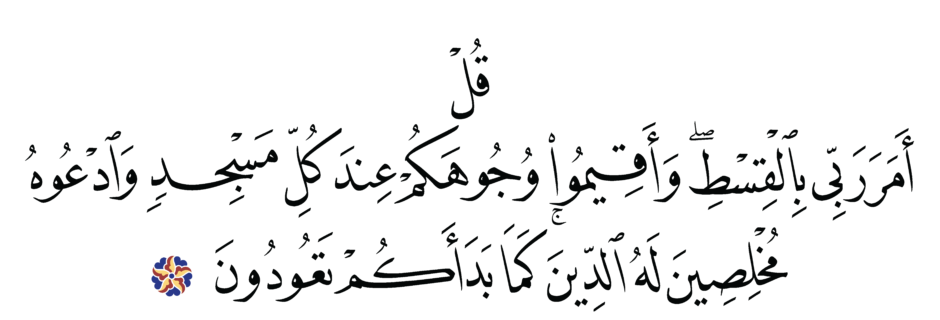 قُلْ
أَمَرَ رَبِّى بِٱلْقِسْطِ ۖ وَأَقِيمُوا۟ وُجُوهَكُمْ عِندَ كُلِّ مَسْجِدٍ وَٱدْعُوهُ
مُخْلِصِينَ لَهُ ٱلدِّينَ ۚ كَمَا بَدَأَكُمْ تَعُودُونَ